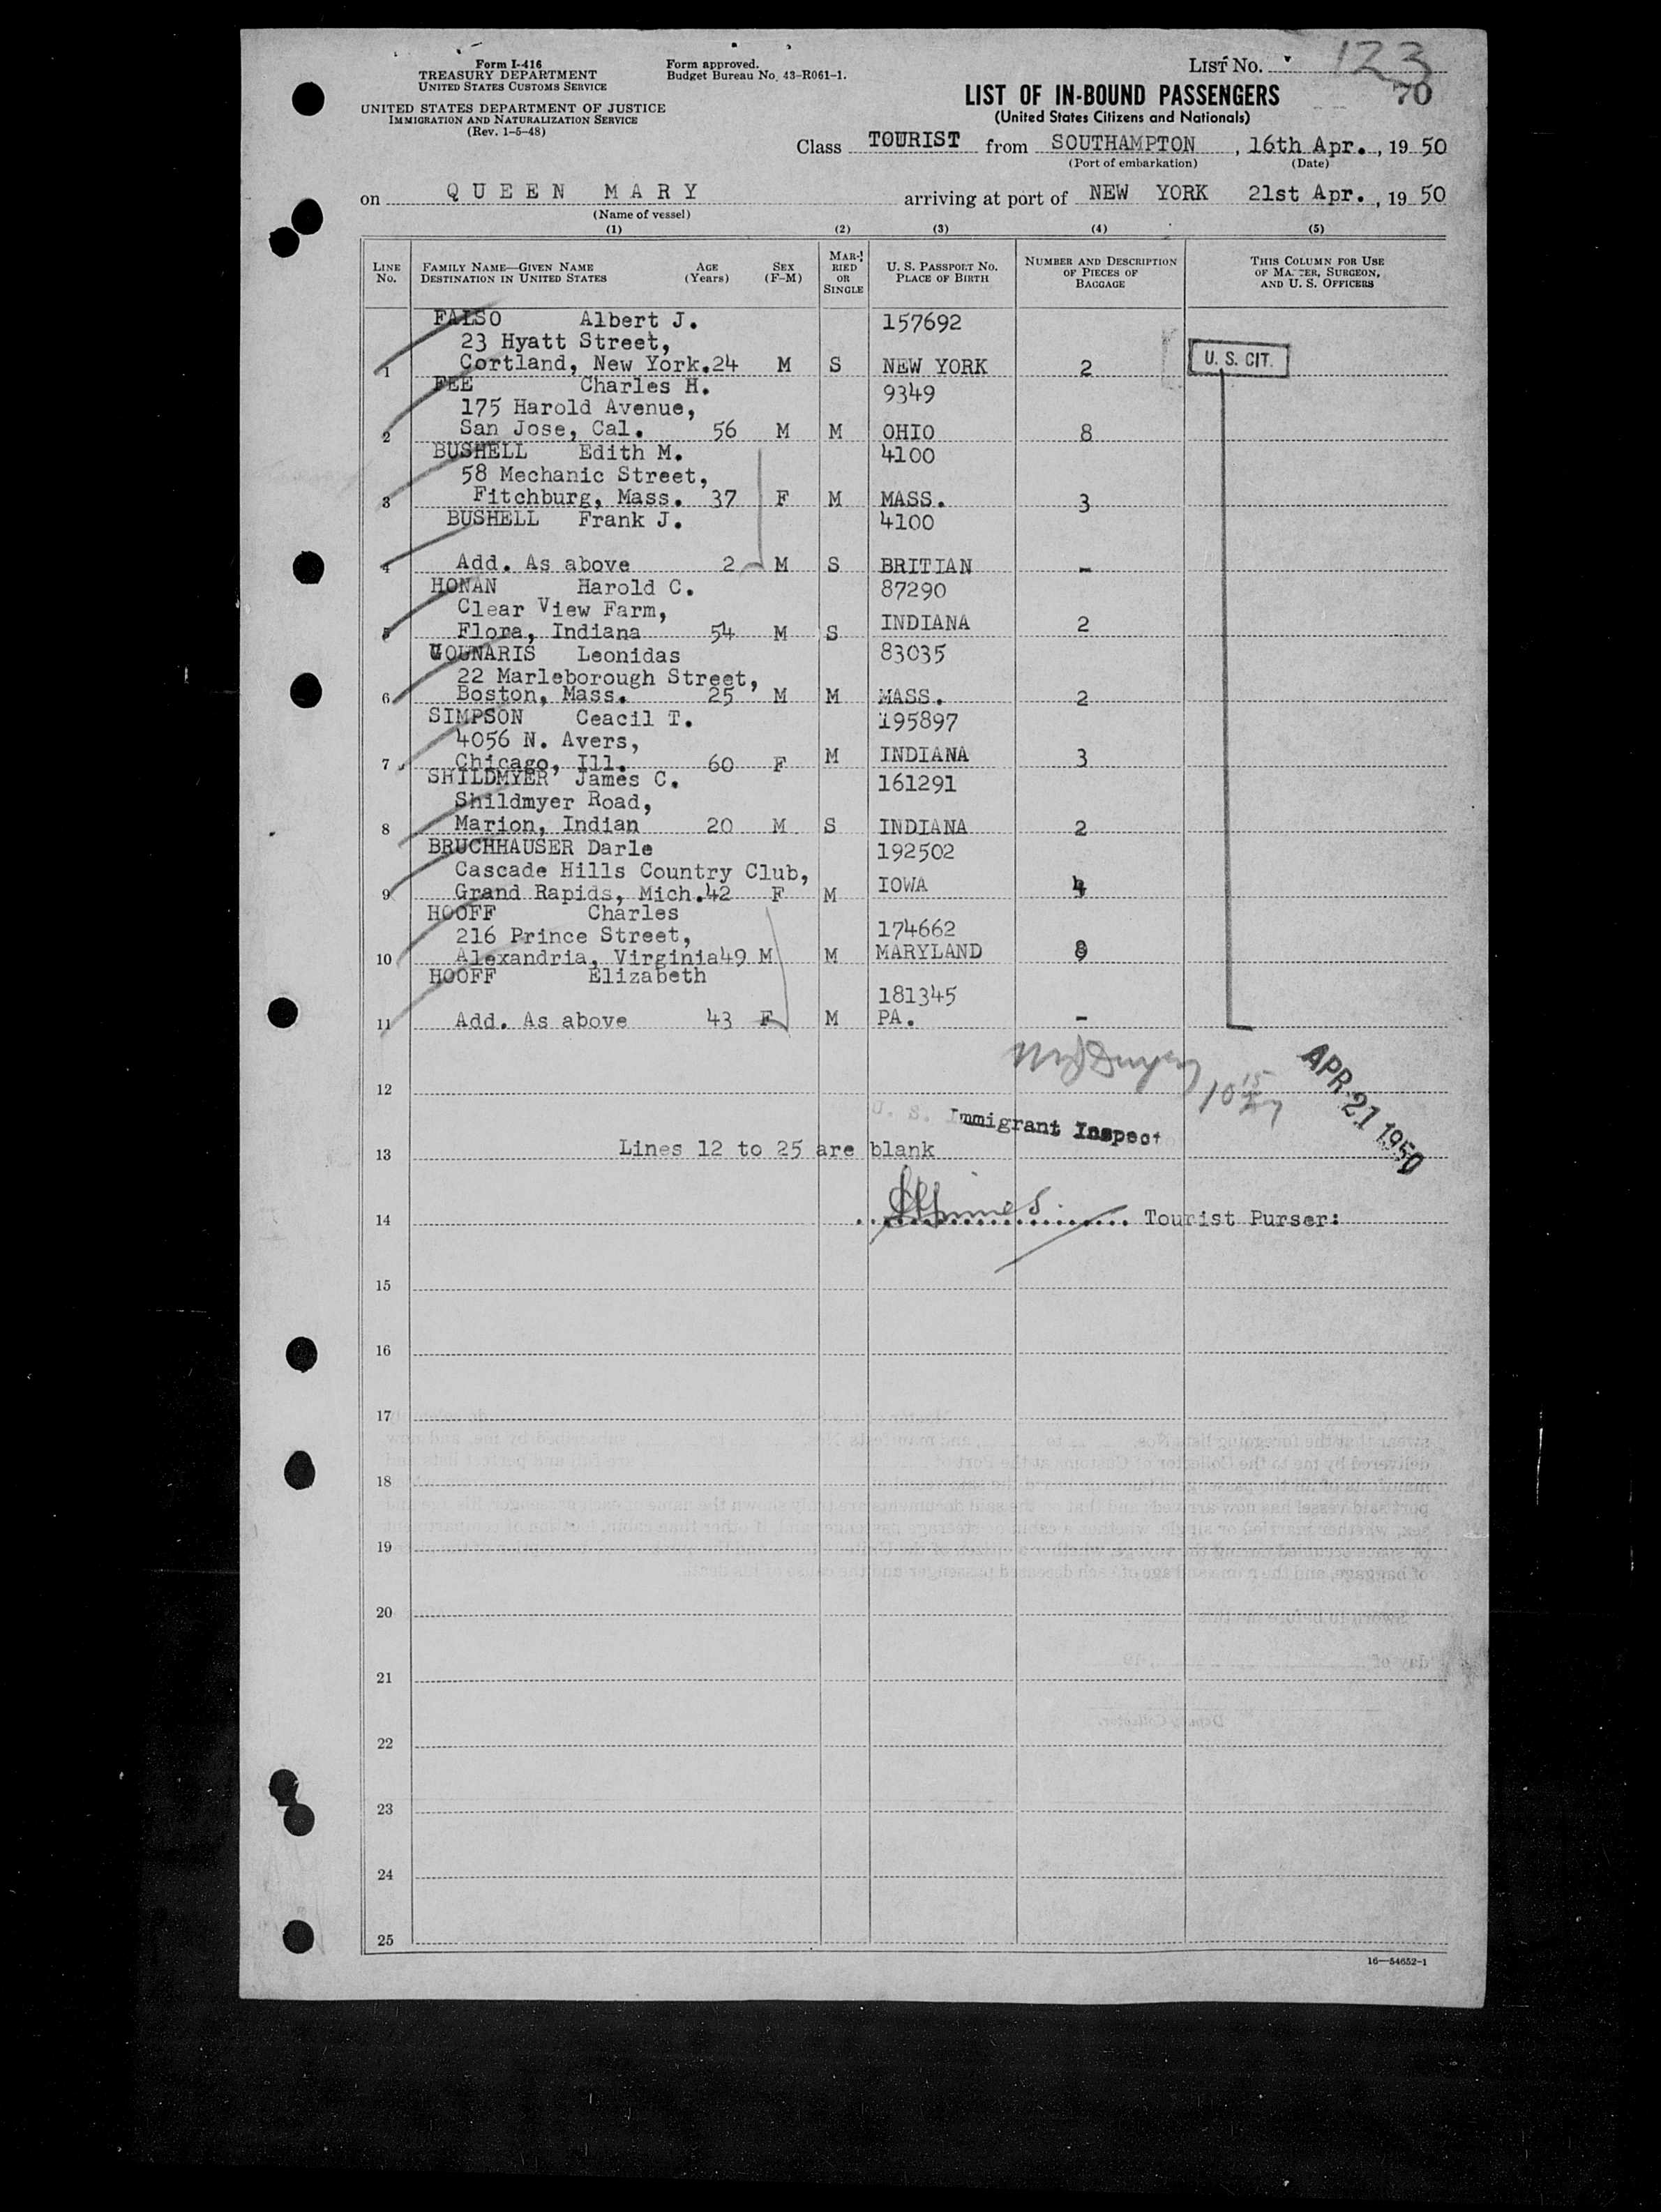 Form I-416
TREASURY DEPARTMENT
UNITED STATES CUSTOMS SERVICE
UNITED STATES DEPARTMENT OF JUSTICE
IMMIGRATION AND NATURALIZATION SERVICE
(Rev. 1-5-48)
Form approved.
Budget Bureau No. 43-R061-1.
LIST NO. 123
70
LIST OF IN-BOUND PASSENGERS
(United States Citizens and Nationals)
Class TOURIST from SOUTHAMPTON, 16th Apr., 19 50
(Port of embarkation) (Date)
on QUEEN MARY arriving at port of NEW YORK 21st Apr., 19 50
(Name of vessel)
(1) (2) (3) (4) (5)
LINE NO. FAMILY NAME—GIVEN NAME DESTINATION IN UNITED STATES AGE (Years) SEX (F-M) MARRIED OR SINGLE U. S. PASSPORT NO. PLACE OF BIRTH NUMBER AND DESCRIPTION OF PIECES OF BAGGAGE THIS COLUMN FOR USE OF MASTER, SURGEON, AND U. S. OFFICERS
FALSO Albert J. 157692
23 Hyatt Street,
1 Cortland, New York. 24 M S NEW YORK 2 U. S. CIT.
FEE Charles H. 9349
175 Harold Avenue,
2 San Jose, Cal. 56 M M OHIO 8
BUSHELL Edith M. 4100
58 Mechanic Street,
3 Fitchburg, Mass. 37 F M MASS. 3
BUSHELL Frank J. 4100
4 Add. As above 2 M S BRITIAN -
HONAN Harold C. 87290
Clear View Farm,
5 Flora, Indiana 54 M S INDIANA 2
GOUNARIS Leonidas 83035
22 Marleborough Street,
6 Boston, Mass. 25 M M MASS. 2
SIMPSON Ceacil T. 195897
4056 N. Avers,
7 Chicago, Ill. 60 F M INDIANA 3
SHILDMYER James C. 161291
Shildmyer Road,
8 Marion, Indian 20 M S INDIANA 2
BRUCHHAUSER Darle 192502
Cascade Hills Country Club,
9 Grand Rapids, Mich. 42 F M IOWA 4
HOOFF Charles
216 Prince Street, 174662
10 Alexandria, Virginia 49 M M MARYLAND 8
HOOFF Elizabeth
181345
11 Add. As above 43 F M PA. -
12
APR 21 1950
U. S. Immigrant Inspect
13 Lines 12 to 25 are blank
14 Tourist Purser:
15
16
17
18
19
20
21
22
23
24
25
16—54652-1